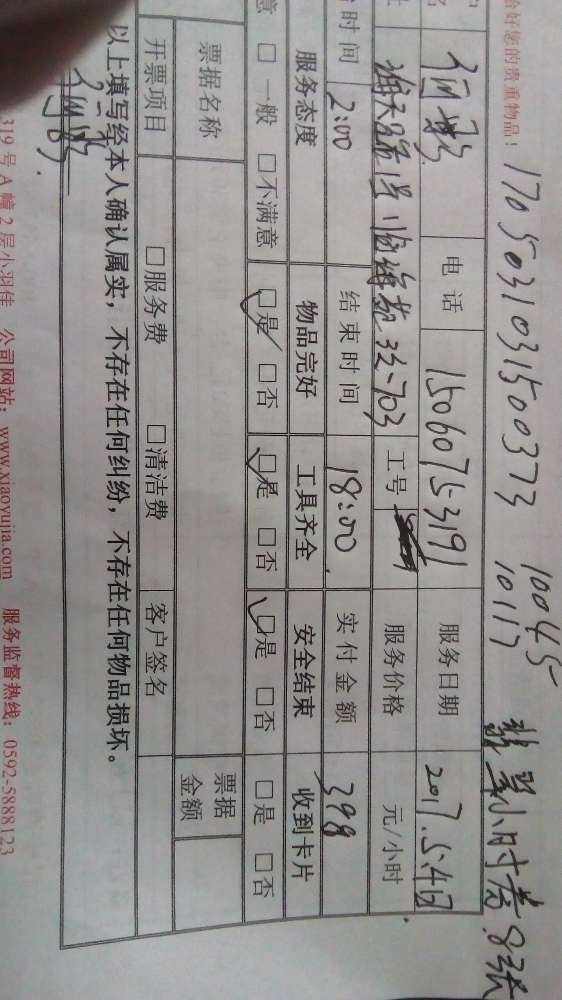 恰好您的贵重物品！
1705031031500373
10045
10117
小时券 8张
电话 15060753191 服务日期 2017.5.4日
32-703 工号 服务价格 元/小时
时间 2:00 结束时间 18:00 实付金额 398
服务态度 物品完好 工具齐全 安全结束 收到卡片
意 □ 一般 □不满意 □是 □否 □是 □否 □是 □否 □是 □否
票据名称 票据金额
开票项目 □服务费 □清洁费 客户签名
以上填写经本人确认属实，不存在任何纠纷，不存在任何物品损坏。
319 号 A 幢 2 层小羽佳 公司网站：www.xiaoyujia.com 服务监督热线：0592-5888123